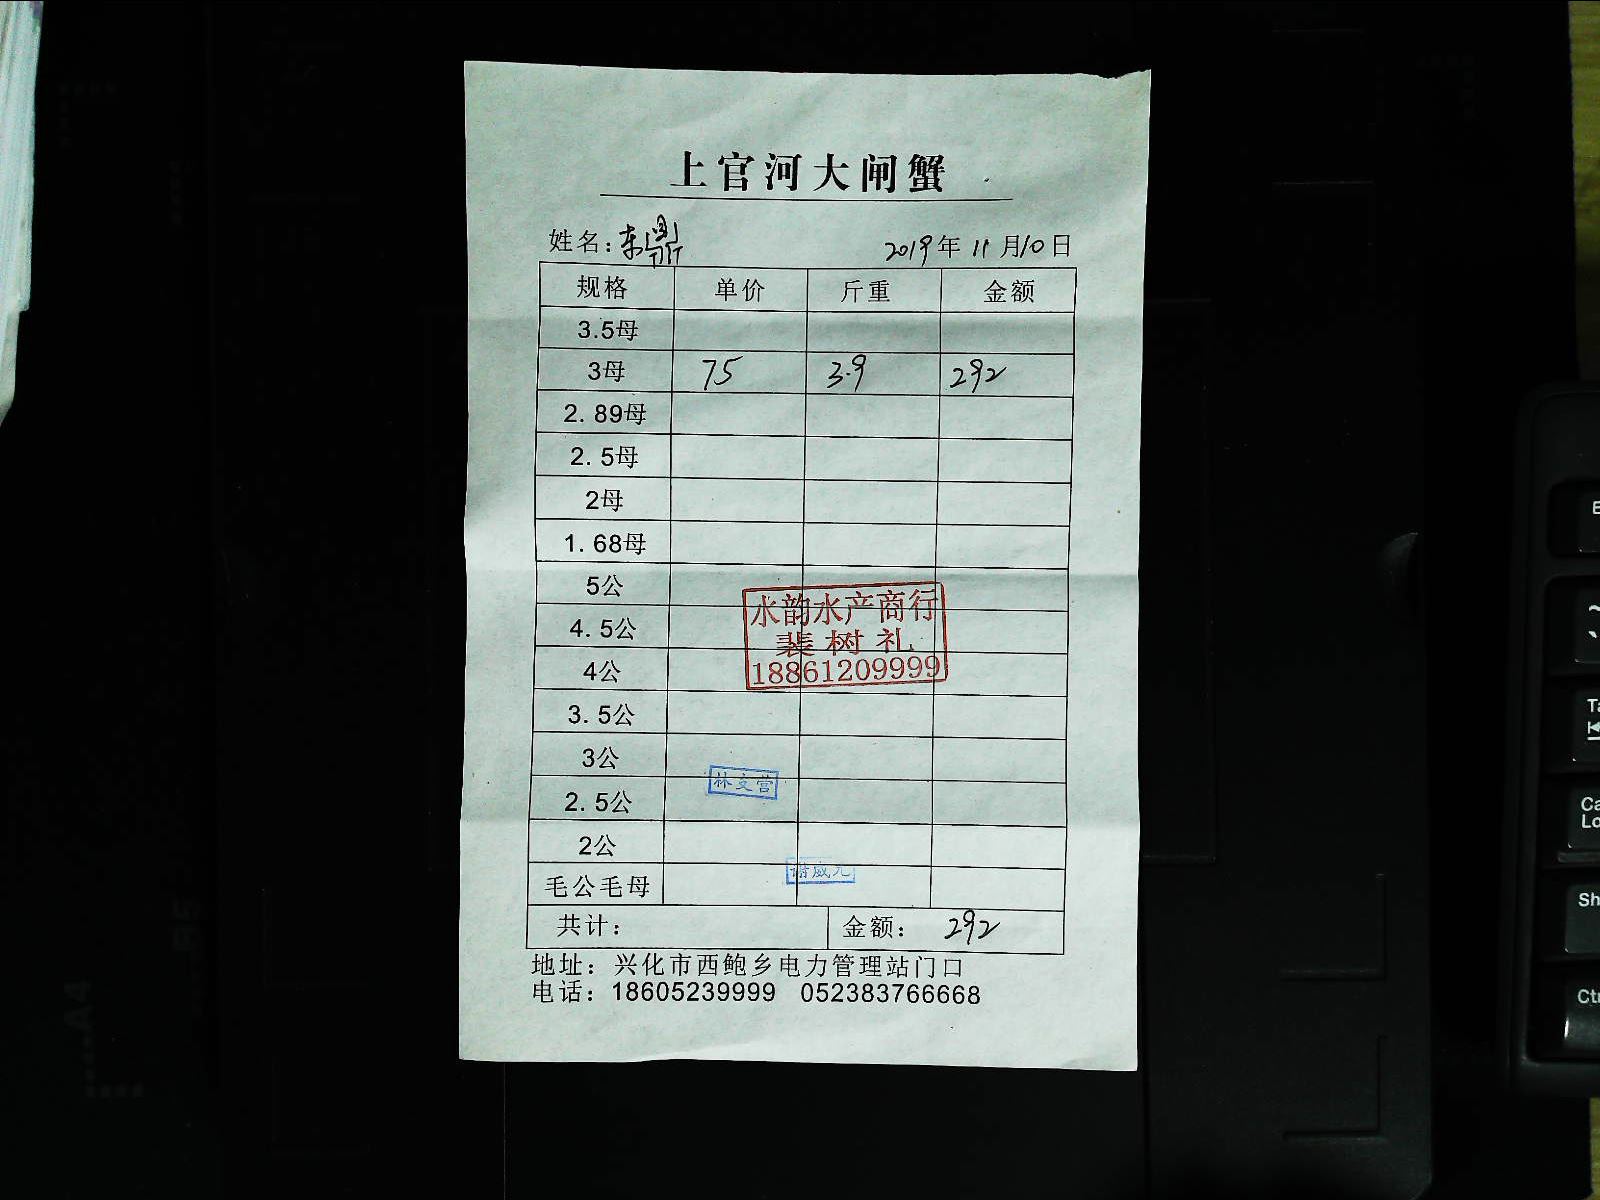 上官河大闸蟹
姓名：东鼎 2019年11月10日
规格 单价 斤重 金额
3.5母
3母 75 3.9 292
2.89母
2.5母
2母
1.68母
5公
水韵水产商行
4.5公
裴树礼
4公
18861209999
3.5公
3公
林文营
2.5公
2公
毛公毛母
谢成元
共计： 金额： 292
地址：兴化市西鲍乡电力管理站门口
电话：18605239999 052383766668
Sh